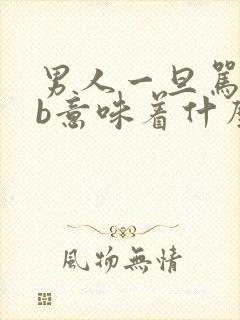 男人一旦罵
b意味着什
風物無情